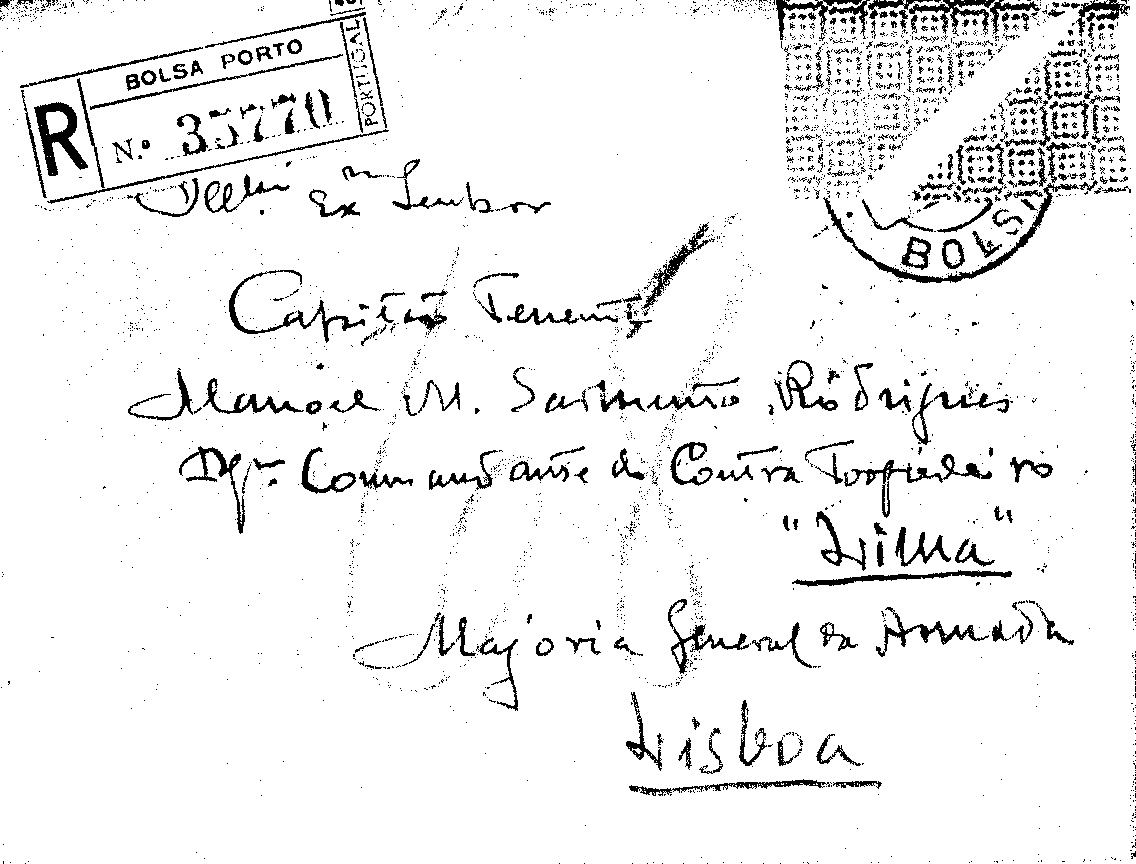 BOLSA PORTO
PORTUGAL
R
N.º 35770
Illmº Exmº Senhor
Capitão Tenente
Manoel M. Sarmento Rodrigues
Dgmº Commandante do Contra Torpedeiro
"Lima"
Majoria General da Armada
Lisboa
BOLSA